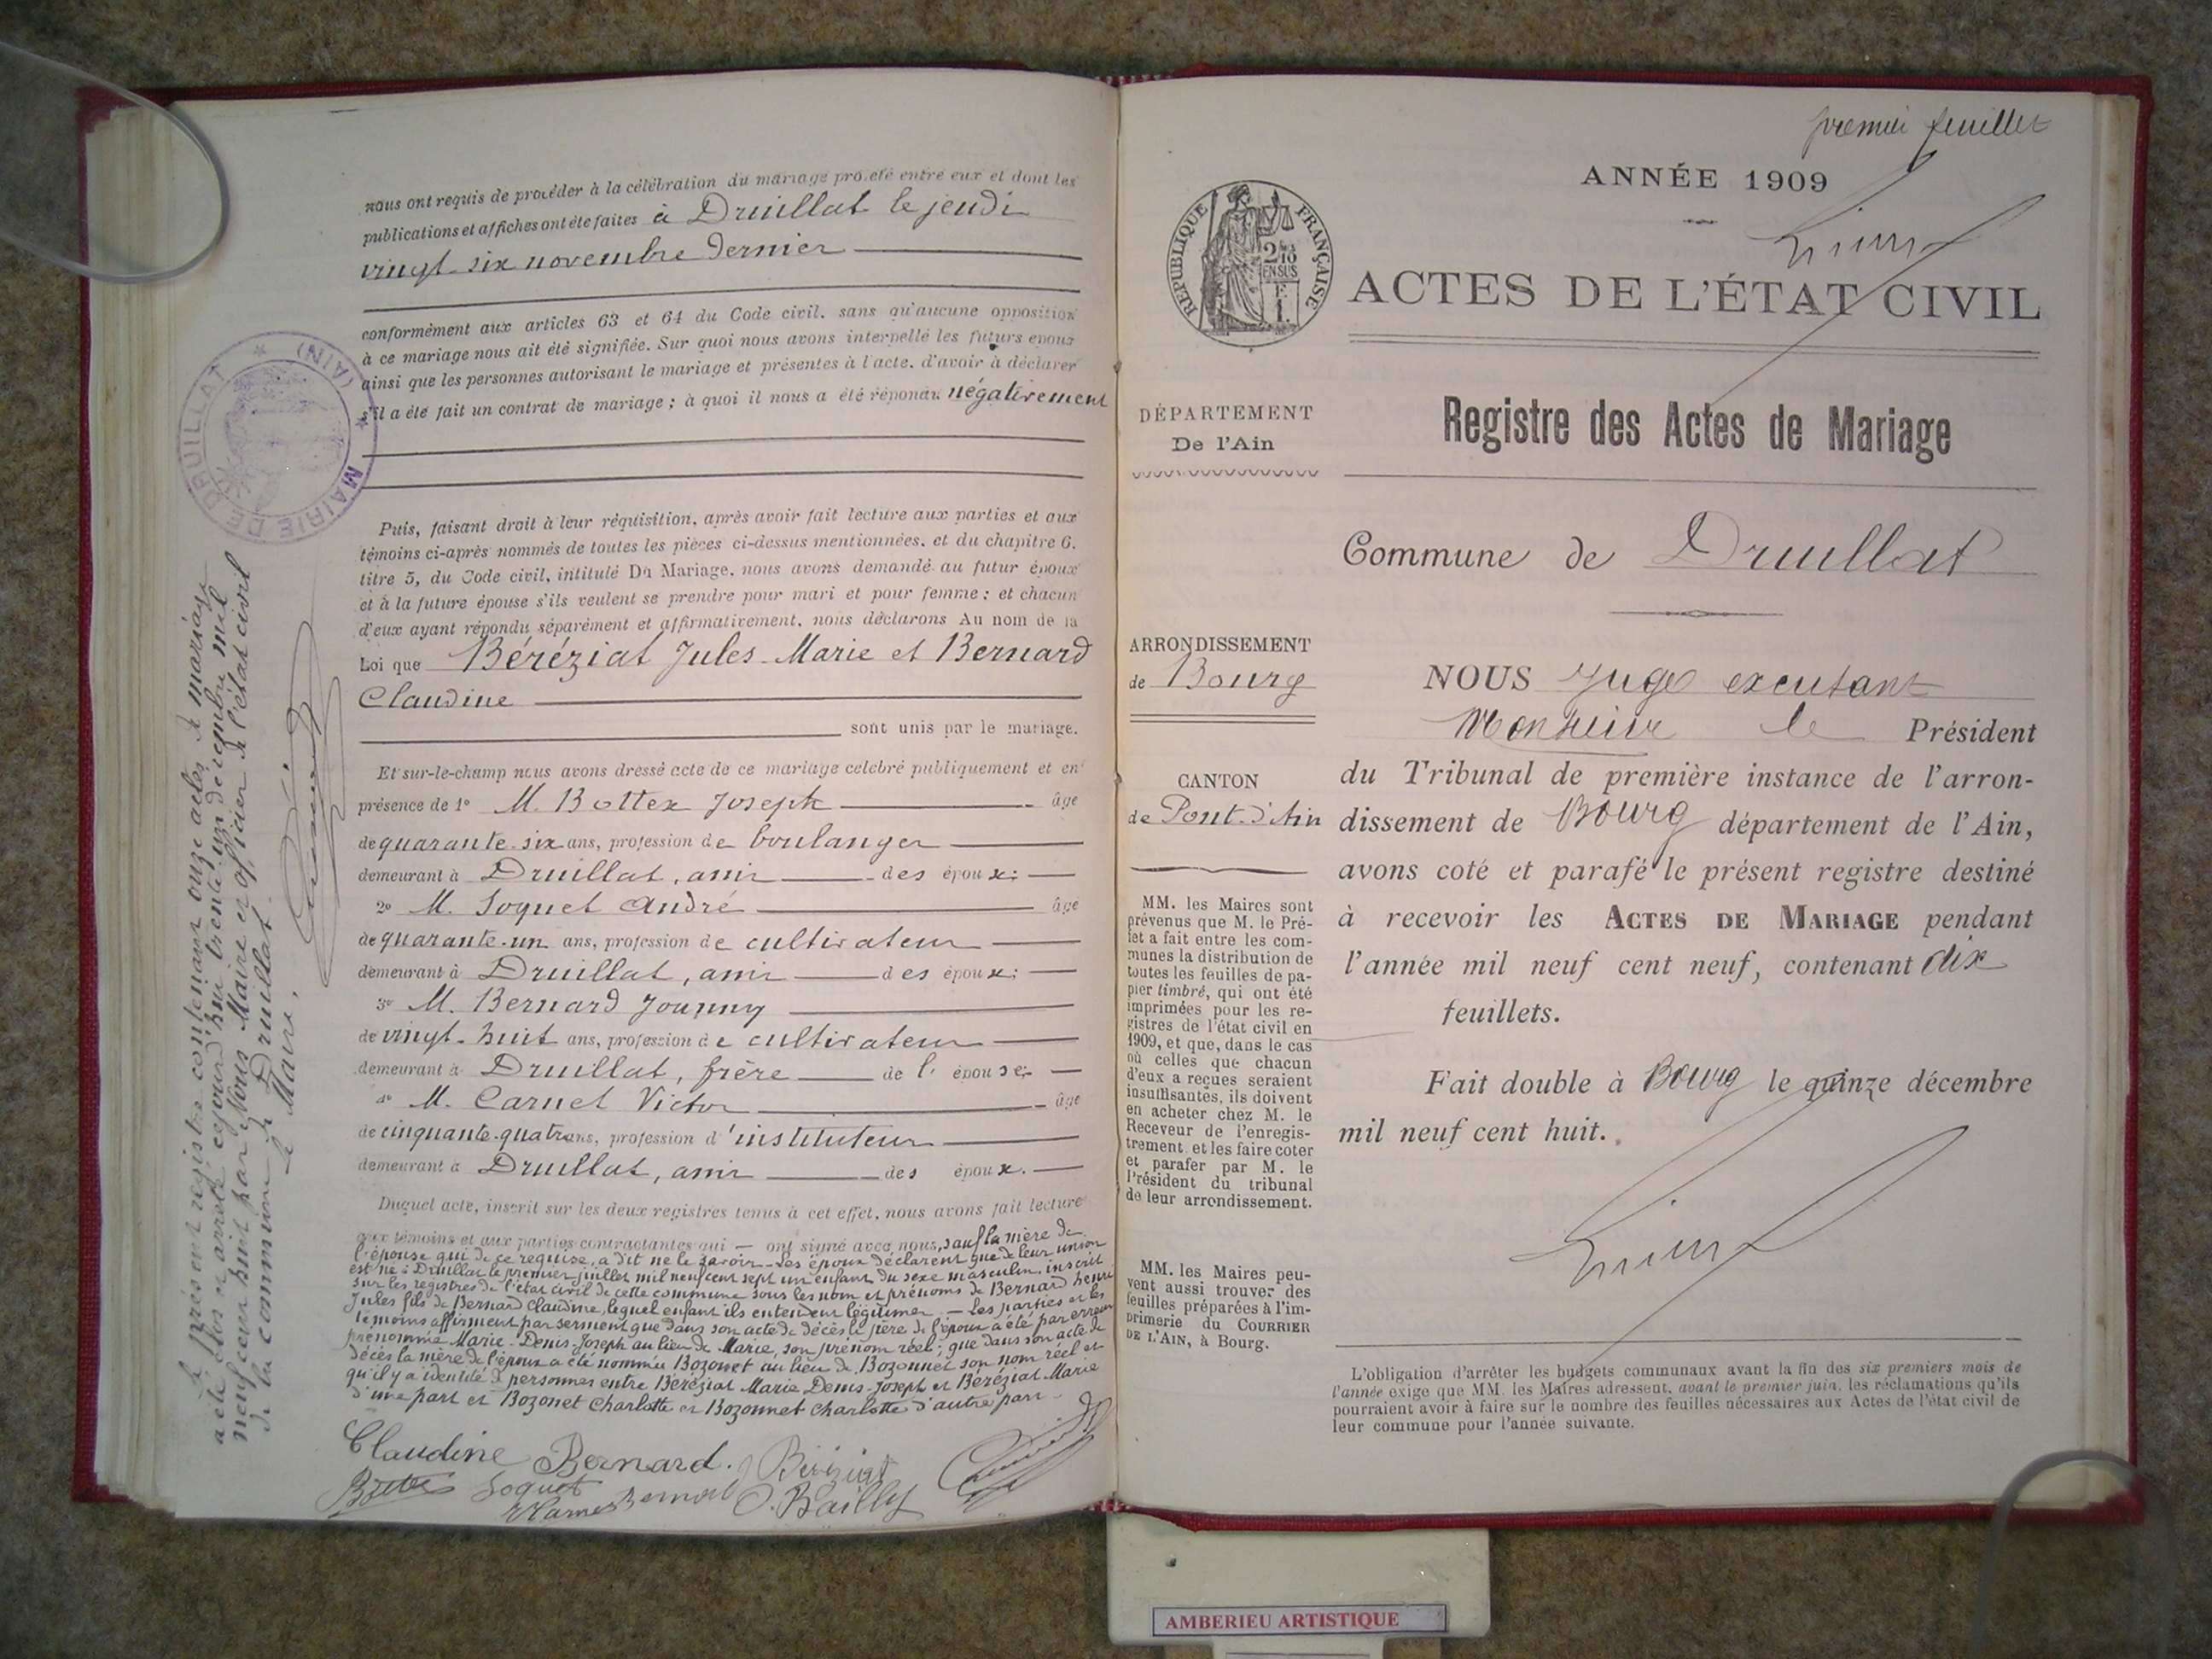 nous ont requis de procéder à la célébration du mariage projeté entre eux et dont les
publications et affiches ont été faites à Druillat le jeudi
vingt-six novembre dernier
conformément aux articles 63 et 64 du Code civil. sans qu'aucune opposition
à ce mariage nous ait été signifiée. Sur quoi nous avons interpellé les futurs epoux
ainsi que les personnes autorisant le mariage et présentes à l'acte. d'avoir à déclarer
s'il a été fait un contrat de mariage ; à quoi il nous a été répondu négativement
MAIRIE DE DRUILLAT * (AIN) *
Puis, faisant droit à leur réquisition, après avoir fait lecture aux parties et aux
témoins ci-après nommés de toutes les pièces ci-dessus mentionnées. et du chapitre 6.
titre 5, du Code civil, intitulé Du Mariage. nous avons demandé au futur époux
et à la future épouse s'ils veulent se prendre pour mari et pour femme ; et chacun
d'eux ayant répondu séparément et affirmativement, nous déclarons Au nom de la
Loi que Béréziat Jules-Marie et Bernard
Claudine
sont unis par le mariage.
Et sur-le-champ nous avons dressé acte de ce mariage celebré publiquement et en
présence de 1° M. Bottex Joseph âge
de quarante-six ans, profession de boulanger
demeurant à Druillat, ami des époux;
2° M. Soquet André âgé
de quarante-un ans, profession de cultivateur
demeurant à Druillat, ami des époux;
3° M. Bernard Joanny
de vingt-huit ans, profession de cultivateur
demeurant à Druillat, frère de l'épouse;
4° M. Carnet Victor âgé
de cinquante-quatre ans, profession d'instituteur
demeurant à Druillat, ami des époux.
Duquel acte, inscrit sur les deux registres tenus à cet effet, nous avons fait lecture
aux témoins et aux parties contractantes qui ont signé avec nous, sauf la mère de
l'épouse qui de ce requise, a dit ne le savoir. Les époux déclarent que de leur union
est né à Druillat le premier juillet mil neuf cent sept un enfant du sexe masculin, inscrit
sur les registres de l'état civil de cette commune sous les nom et prénoms de Bernard henri
Jules fils de Bernard Claudine, lequel enfant ils entendent légitimer. - Les parties et les
témoins affirment par serment que dans son acte de décès le père de l'époux a été par erreur
prénommé Marie-Denis-Joseph au lieu de Marie, son prénom réel; que dans son acte de
décès la mère de l'époux a été nommée Bozonet au lieu de Bozonnet son nom réel et
qu'il y a identité de personnes entre Béréziat Marie Denis-Joseph et Béréziat Marie
d'une part et Bozonet Charlotte et Bozonnet Charlotte d'autre part.
Claudine Bernard. J Béréziat
Bottex Soquet
VCarnet Bernard O. Bailly
Le présent registre contenant onze actes de mariage
a été clos et arrêté cejourd'hui trente-un décembre mil
neuf cent huit par Nous Maire et officier de l'état civil
de la commune de Druillat.
le Maire,
premier feuillet
ANNÉE 1909
RÉPUBLIQUE FRANÇAISE
ACTES DE L'ÉTAT CIVIL
Registre des Actes de Mariage
Commune de Druillat
DÉPARTEMENT
De l'Ain
ARRONDISSEMENT
de Bourg
CANTON
de Pont-d'Ain
MM. les Maires sont
prévenus que M. le Pré-
fet a fait entre les com-
munes la distribution de
toutes les feuilles de pa-
pier timbré, qui ont été
imprimées pour les re-
gistres de l'état civil en
1909, et que, dans le cas
où celles que chacun
d'eux a reçues seraient
insuffisantes, ils doivent
en acheter chez M. le
Receveur de l'enregis-
trement et les faire coter
et parafer par M. le
Président du tribunal
de leur arrondissement.
MM. les Maires peu-
vent aussi trouver des
feuilles préparées à l'im-
primerie du COURRIER
DE L'AIN, à Bourg.
NOUS Juge excusant
Monsieur le Président
du Tribunal de première instance de l'arron-
dissement de Bourg département de l'Ain,
avons coté et parafé le présent registre destiné
à recevoir les ACTES DE MARIAGE pendant
l'année mil neuf cent neuf, contenant dix
feuillets.
Fait double à Bourg le quinze décembre
mil neuf cent huit.
L'obligation d'arrêter les budgets communaux avant la fin des six premiers mois de
l'année exige que MM. les Maires adressent, avant le premier juin, les réclamations qu'ils
pourraient avoir à faire sur le nombre des feuilles nécessaires aux Actes de l'état civil de
leur commune pour l'année suivante.
AMBERIEU ARTISTIQUE